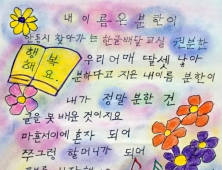 내 이름은 분한이
한동시 찾아가는 한글배달교실 권분한
행복
해요.
우리 어매 딸셋 낳아
분하다고 지은 내이름 분한이
내가 정말 분한 건
글을 못 배운 것이지요
마흔서이에 혼자 되어
쭈그렁 할머니가 되어